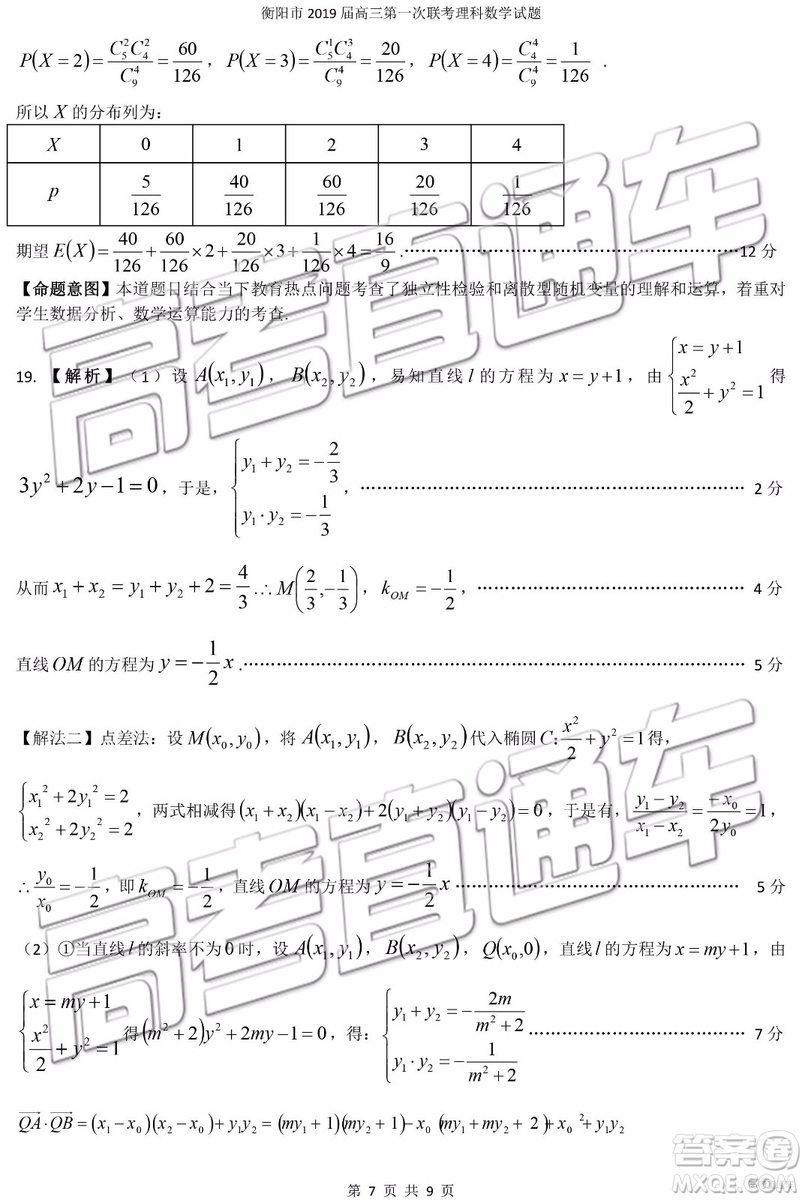 衡阳市 2019 届高三第一次联考理科数学试题
P(X=2)=C₅²C₄²/C₉⁴=60/126，P(X=3)=C₅¹C₄³/C₉⁴=20/126，P(X=4)=C₄⁴/C₉⁴=1/126．
所以 X 的分布列为：
X 0 1 2 3 4
p 5/126 40/126 60/126 20/126 1/126
期望 E(X)=40/126+60/126×2+20/126×3+1/126×4=16/9．……12 分
【命题意图】本道题目结合当下教育热点问题考查了独立性检验和离散型随机变量的理解和运算，着重对
学生数据分析、数学运算能力的考查.
19. 【解析】（1）设 A(x₁,y₁)，B(x₂,y₂)，易知直线 l 的方程为 x=y+1，由 {x=y+1, x²/2+y²=1 得
3y²+2y-1=0，于是，{y₁+y₂=-2/3, y₁·y₂=-1/3，…… 2 分
从而 x₁+x₂=y₁+y₂+2=4/3 ∴M(2/3,-1/3)，k_OM=-1/2，…… 4 分
直线 OM 的方程为 y=-1/2 x .…… 5 分
【解法二】点差法：设 M(x₀,y₀)，将 A(x₁,y₁)，B(x₂,y₂)代入椭圆 C: x²/2+y²=1 得，
{x₁²+2y₁²=2, x₂²+2y₂²=2，两式相减得 (x₁+x₂)(x₁-x₂)+2(y₁+y₂)(y₁-y₂)=0，于是有，(y₁-y₂)/(x₁-x₂)=-x₀/2y₀=1，
∴y₀/x₀=-1/2，即 k_OM=-1/2，直线 OM 的方程为 y=-1/2 x …… 5 分
（2）①当直线 l 的斜率不为 0 时，设 A(x₁,y₁)，B(x₂,y₂)，Q(x₀,0)，直线 l 的方程为 x=my+1，由
{x=my+1, x²/2+y²=1 得 (m²+2)y²+2my-1=0，得：{y₁+y₂=-2m/(m²+2), y₁·y₂=-1/(m²+2) …… 7 分
QA·QB=(x₁-x₀)(x₂-x₀)+y₁y₂=(my₁+1)(my₂+1)-x₀(my₁+my₂+2)+x₀²+y₁y₂
第 7 页 共 9 页
高考直通车
高考直通车